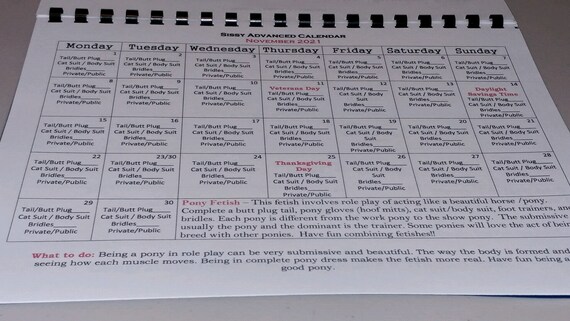 Sissy Advanced Calendar
November 2021
Monday Tuesday Wednesday Thursday Friday Saturday Sunday
1 2 3
Tail/Butt Plug____ Tail/Butt Plug____ Tail/Butt Plug____ Tail/Butt Plug____ Tail/Butt Plug____ Tail/Butt Plug____ Tail/Butt Plug____
Cat Suit / Body Suit Cat Suit / Body Suit Cat Suit / Body Suit Cat Suit / Body Suit Cat Suit / Body Suit Cat Suit / Body Suit Cat Suit / Body Suit
Bridles____ Bridles____ Bridles____ Bridles____ Bridles____ Bridles____ Bridles____
Private/Public Private/Public Private/Public Private/Public Private/Public Private/Public Private/Public
8 9 10 11 12 13 14
Tail/Butt Plug____ Tail/Butt Plug____ Tail/Butt Plug____ Veterans Day Tail/Butt Plug____ Tail/Butt Plug____ Daylight
Cat Suit / Body Suit Cat Suit / Body Suit Cat Suit / Body Suit Tail/Butt Plug____ Cat Suit / Body Suit Cat Suit / Body Suit Savings Time
Bridles____ Bridles____ Bridles____ Cat Suit / Body Suit Bridles____ Bridles____ Tail/Butt Plug____
Private/Public Private/Public Private/Public Bridles____ Private/Public Private/Public Cat Suit / Body Suit
Private/Public Bridles____
Private/Public
15 16 17 18 19 20 21
Tail/Butt Plug____ Tail/Butt Plug____ Tail/Butt Plug____ Tail/Butt Plug____ Tail/Butt Plug____ Tail/Butt Plug____ Tail/Butt Plug____
Cat Suit / Body Suit Cat Suit / Body Suit Cat Suit / Body Suit Cat Suit / Body Suit Cat Suit / Body Suit Cat Suit / Body Suit Cat Suit / Body Suit
Bridles____ Bridles____ Bridles____ Bridles____ Bridles____ Bridles____ Bridles____
Private/Public Private/Public Private/Public Private/Public Private/Public Private/Public Private/Public
22 23/30 24 25 26 27 28
Tail/Butt Plug____ Tail/Butt Plug____ Tail/Butt Plug____ Thanksgiving Tail/Butt Plug____ Tail/Butt Plug____ Tail/Butt Plug____
Cat Suit / Body Suit Cat Suit / Body Suit Cat Suit / Body Suit Day Cat Suit / Body Suit Cat Suit / Body Suit Cat Suit / Body Suit
Bridles____ Bridles____ Bridles____ Tail/Butt Plug____ Bridles____ Bridles____ Bridles____
Private/Public Private/Public Private/Public Cat Suit / Body Suit Private/Public Private/Public Private/Public
Bridles____
Private/Public
29 30
Tail/Butt Plug____ Tail/Butt Plug____
Cat Suit / Body Suit Cat Suit / Body Suit
Bridles____ Bridles____
Private/Public Private/Public
Pony Fetish – This fetish involves role play of acting like a beautiful horse /pony.
Complete a butt plug tail, pony gloves (hoof mitts), cat suit/body suit, foot trainers, and
bridles. Each pony is different from the work pony to the show pony. The submissive
usually the pony and the dominant is the trainer. Some ponies will love the act of being
breed with other ponies. Have fun combining fetishes!!
What to do: Being a pony in role play can be very submissive and beautiful. The way the body is formed and
seeing how each muscle moves. Being in complete pony dress makes the fetish more real. Have fun being a
good pony.